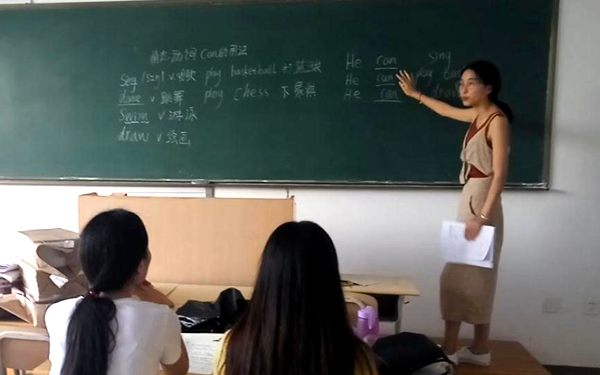 情态动词Can的用法
Sing /sɪŋ/ v 唱歌 play basketball 打篮球
dance v 跳舞 play chess 下象棋
Swim v 游泳
draw v 绘画
He can sing
He can play
He can draw